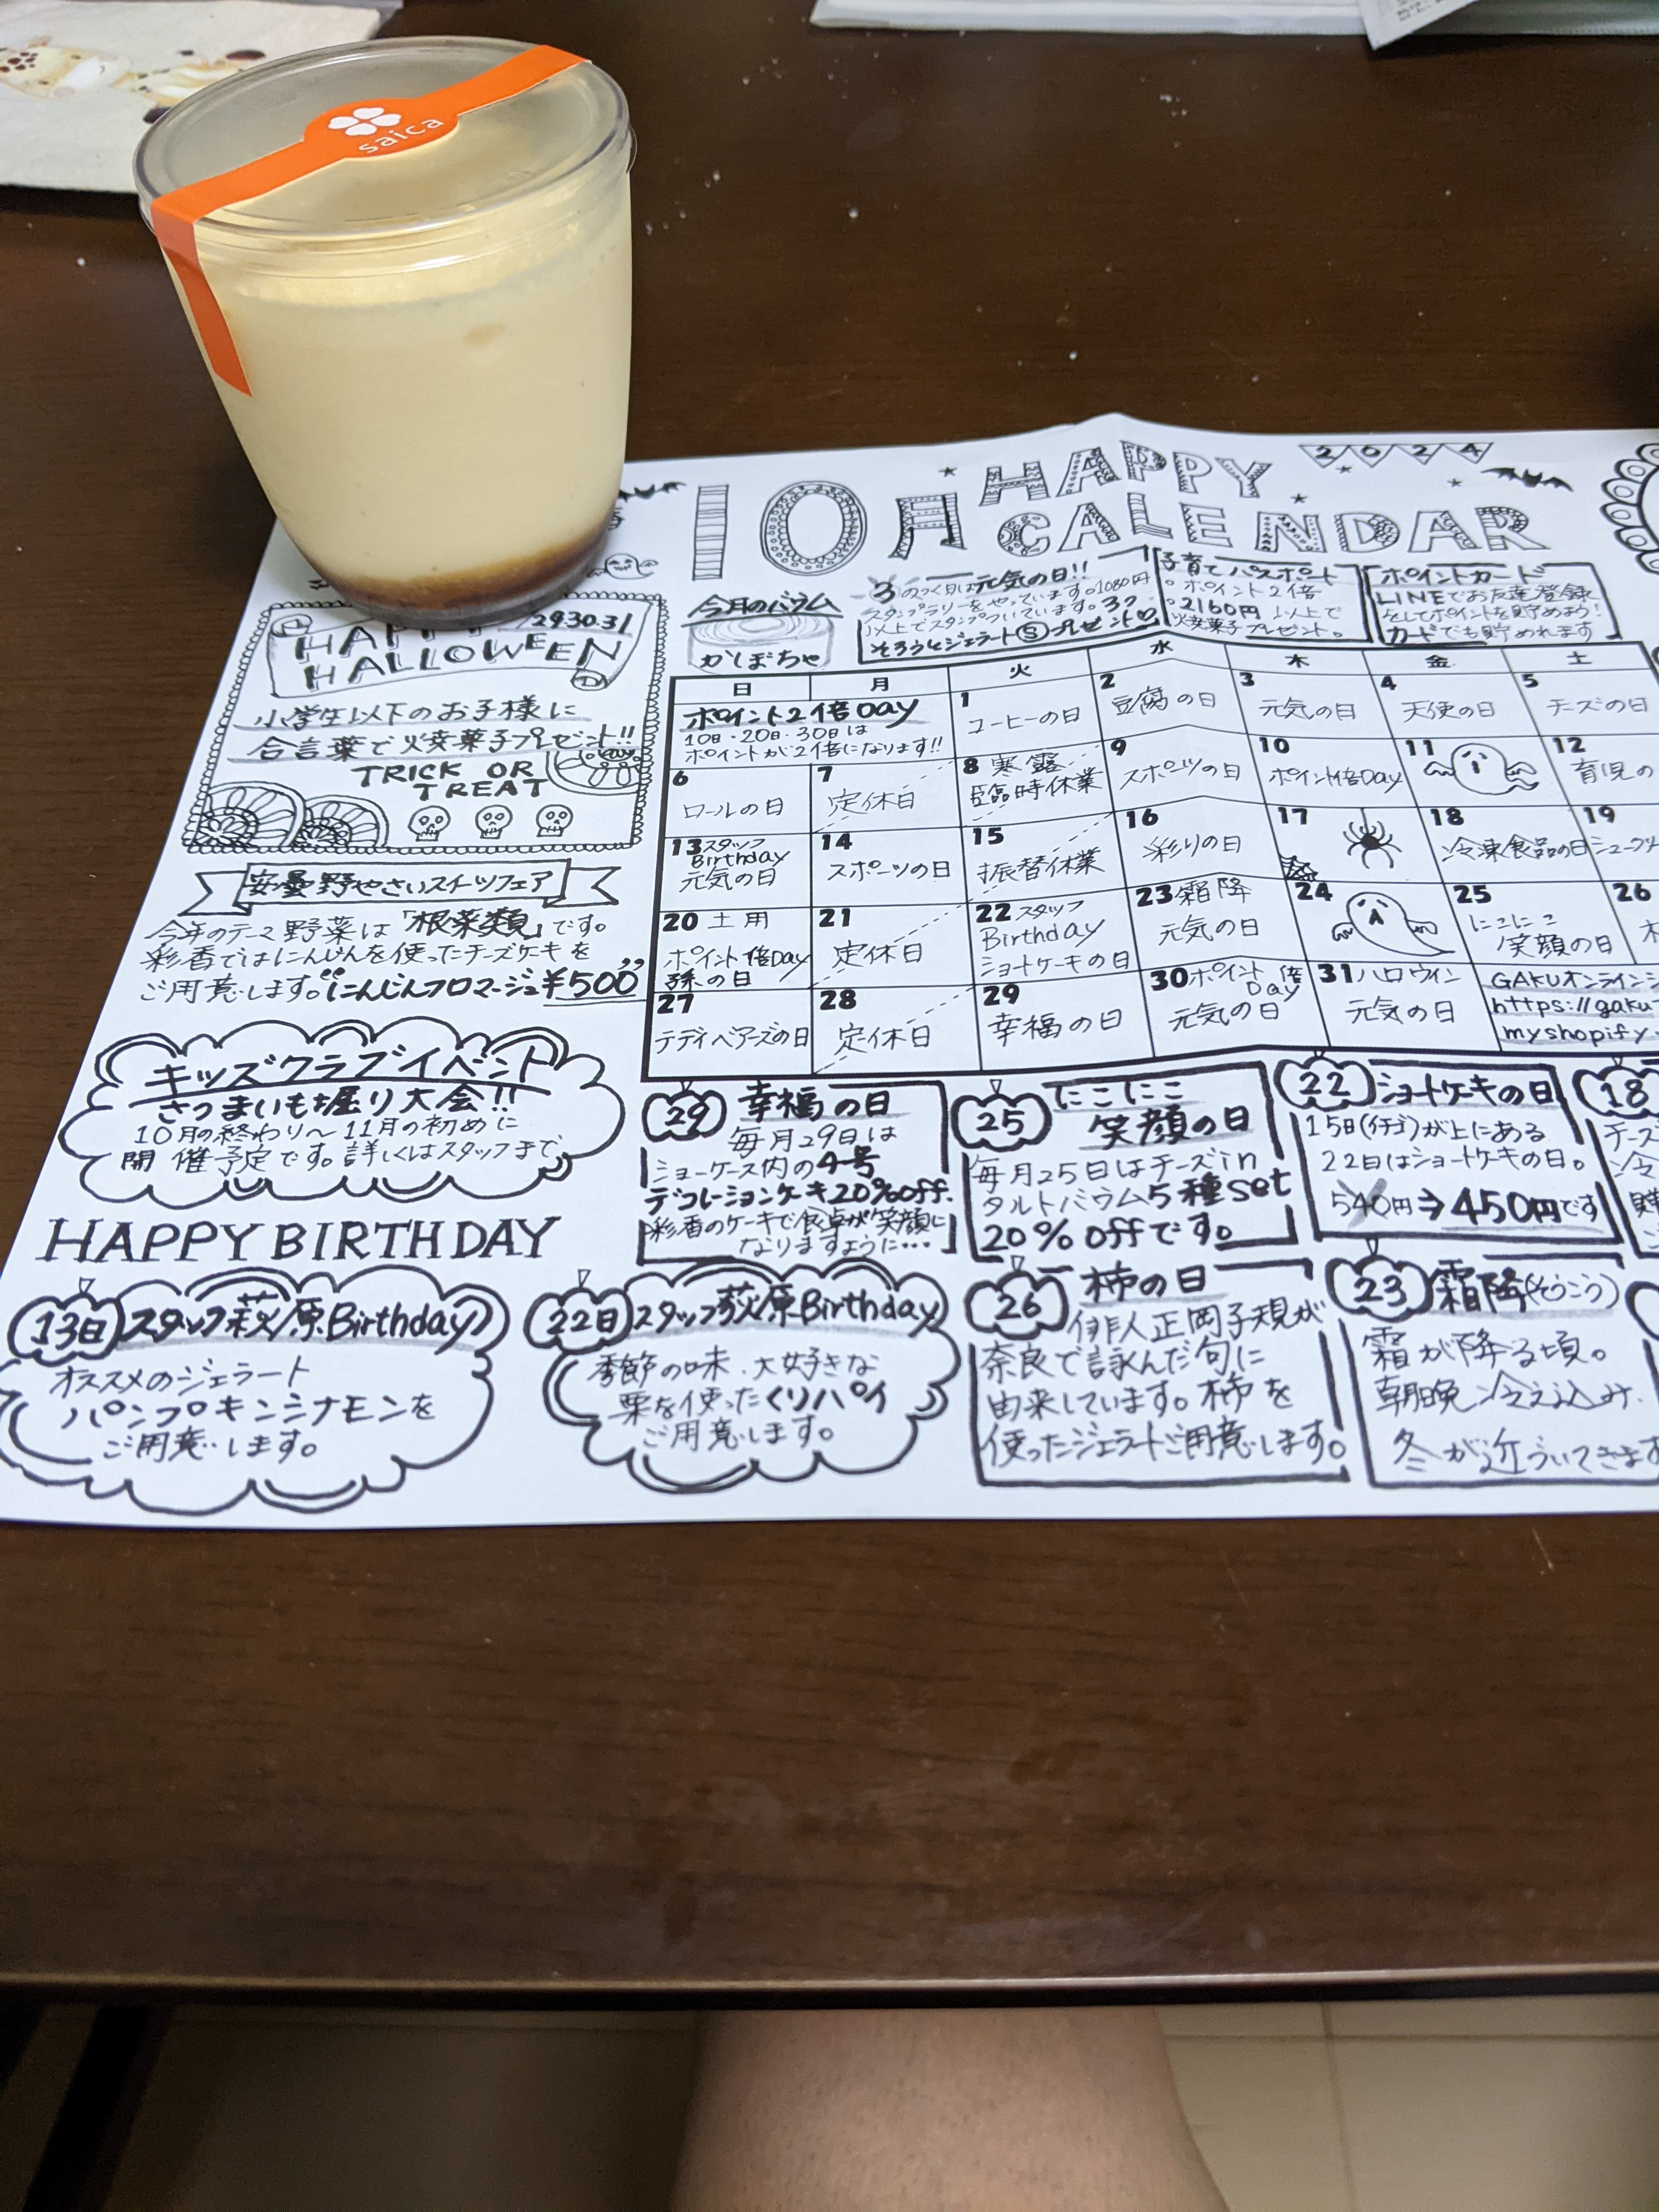 saica
2024
10月 HAPPY
CALENDAR
今月のバウム
かぼちゃ
3のつく日は元気の日!!
スタンプラリーをやっています。1080円
以上でスタンプついています。3つ
そろうとジェラートⓈプレゼント♡
子育てパスポート
。ポイント2倍
。2160円 以上で
焼菓子プレゼント。
ポイントカード
LINEでお友達登録
をしてポイントを貯めよう!
カードでも貯めれます
29.30.31
HAPPY
HALLOWEEN
小学生以下のお子様に
合言葉で焼菓子プレゼント!!
TRICK OR
TREAT
安曇野やさいスイーツフェア
今年のテーマ野菜は「根菜類」です。
彩香ではにんじんを使ったチーズケーキを
ご用意します。“にんじんフロマージュ¥500”
キッズクラブイベント
さつまいも堀り大会!!
10月の終わり〜11月の初めに
開催予定です。詳しくはスタッフまで
HAPPY BIRTHDAY
13日 スタッフ萩原Birthday
オススメのジェラート
パンプキンシナモンを
ご用意します。
22日 スタッフ荻原Birthday
季節の味、大好きな
栗を使ったくりパイ
ご用意します。
日 月 火 水 木 金 土
ポイント2倍Day
10日・20日・30日は
ポイントが2倍になります!!
1 コーヒーの日
2 豆腐の日
3 元気の日
4 天使の日
5 チーズの日
6 ロールの日
7 定休日
8 寒露
臨時休業
9 スポーツの日
10 ポイント倍Day
11
12 育児の
13 スタッフ
Birthday
元気の日
14 スポーツの日
15 振替休業
16 彩りの日
17
18 冷凍食品の日
19 シュークリ
20 土用
ポイント倍Day
孫の日
21 定休日
22 スタッフ
Birthday
ショートケーキの日
23 霜降
元気の日
24
25 にこにこ
笑顔の日
26
27 テディベアーズの日
28 定休日
29 幸福の日
30 ポイント倍
Day
元気の日
31 ハロウィン
元気の日
GAKUオンラインシ
https://gaku-
myshopify.
29 幸福の日
毎月29日は
ショーケース内の4号
デコレーションケーキ20%off.
彩香のケーキで食卓が笑顔に
なりますように…
25 にこにこ
笑顔の日
毎月25日はチーズin
タルトバウム5種set
20%offです。
22 ショートケーキの日
15日(イチゴ)が上にある
22日はショートケーキの日。
540円⇒450円です
18
チーズ
26 柿の日
俳人正岡子規が
奈良で詠んだ句に
由来しています。柿を
使ったジェラートご用意します。
23 霜降(そうこう)
霜が降る頃。
朝晩冷え込み、
冬が近づいてきます